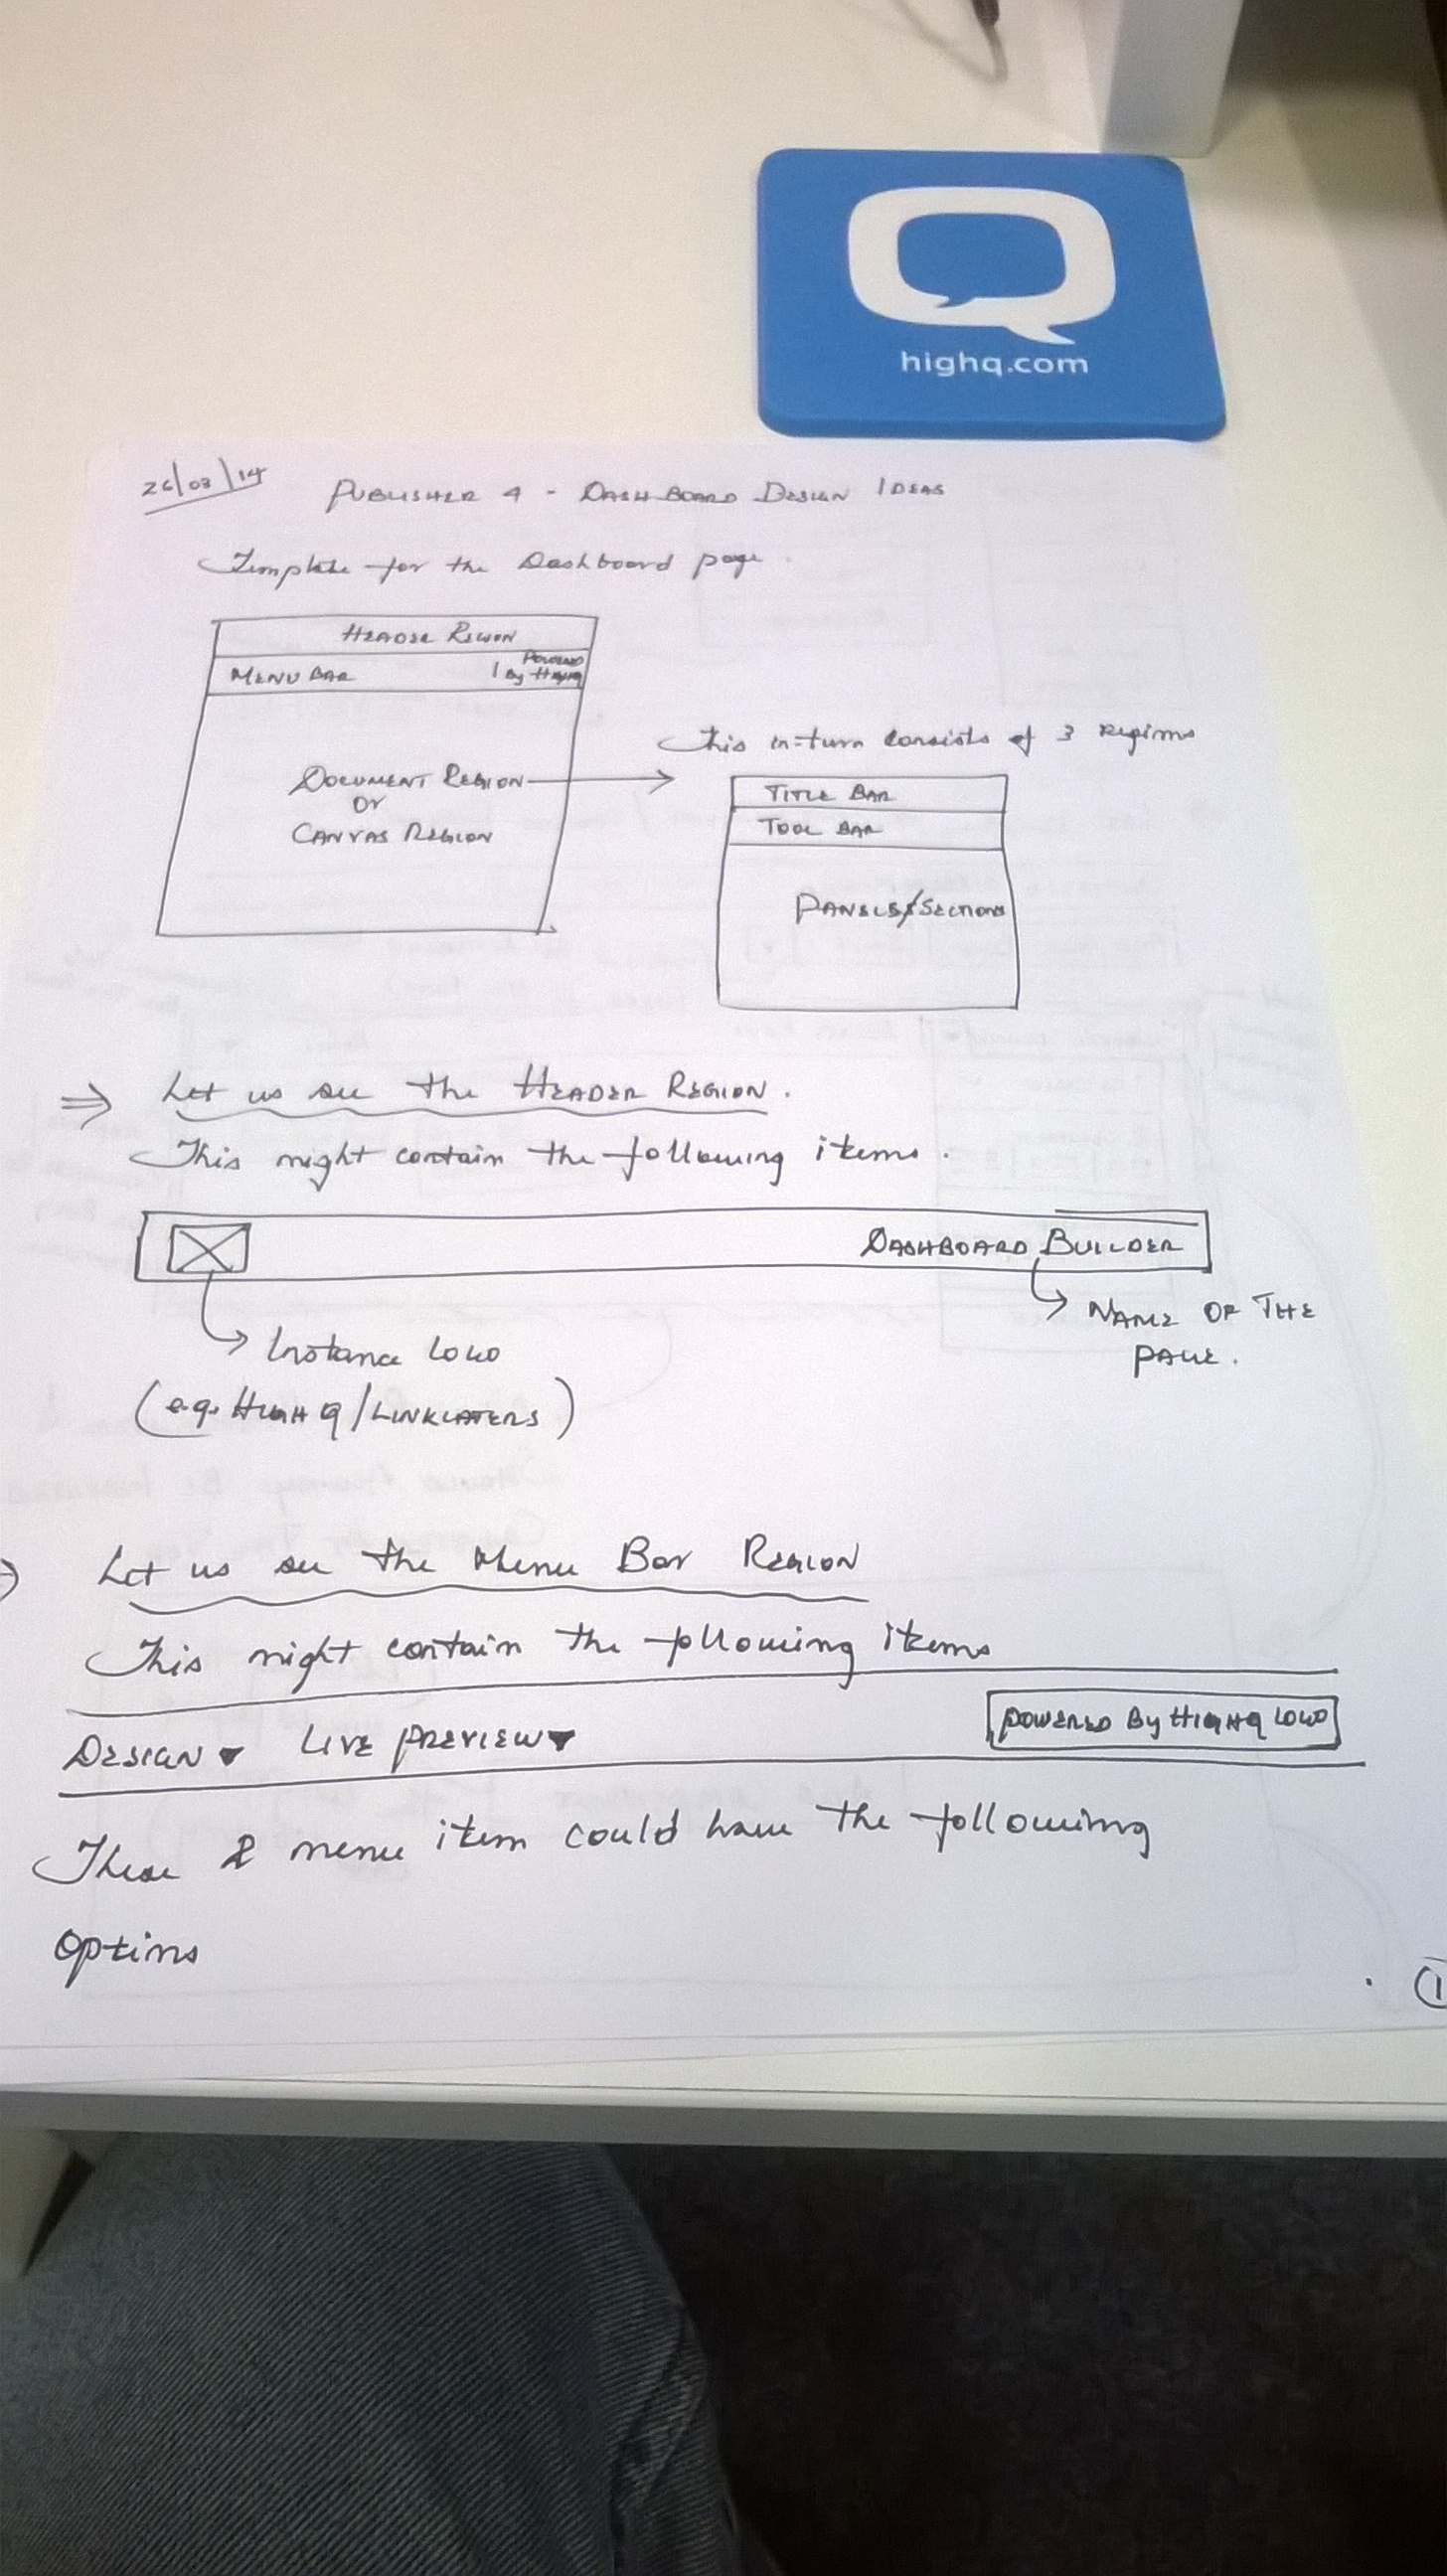 highq.com
26/03/14 PUBLISHER 4 - DASHBOARD DESIGN IDEAS
Template for the Dashboard page.
HEADER REGION
MENU BAR | POWERED By HighQ
This in-turn consists of 3 regions
DOCUMENT REGION
or
CANVAS REGION
TITLE BAR
TOOL BAR
PANELS/SECTIONS
⇒ Let us see the HEADER REGION.
This might contain the following items.
DASHBOARD BUILDER
NAME OF THE
PAGE.
Instance LOGO
(e.g. HIGHQ/LINKLATERS)
Let us see the Menu Bar REGION
This might contain the following items
DESIGN ▼ LIVE PREVIEW ▼ POWERED By HIGHQ LOGO
These 2 menu item could have the following
Options
1